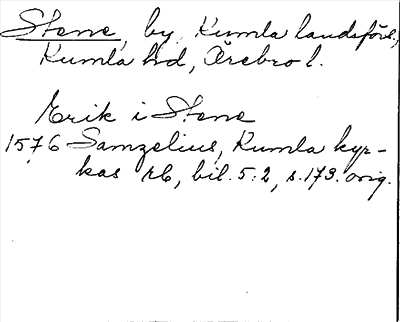 Stene, by, Kumla landsförs.,
Kumla hd, Örebro l.
Erik i Stene
1576 Samzelius, Kumla kyr-
kas rb, bil. 5:2, s. 173. orig.